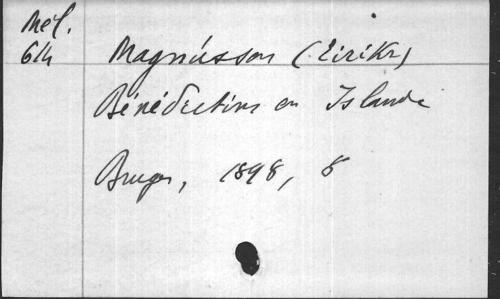 Mél.
614 Magnússon (Eirikr)
Bénédictins en Islande
Bruges, 1898, 8